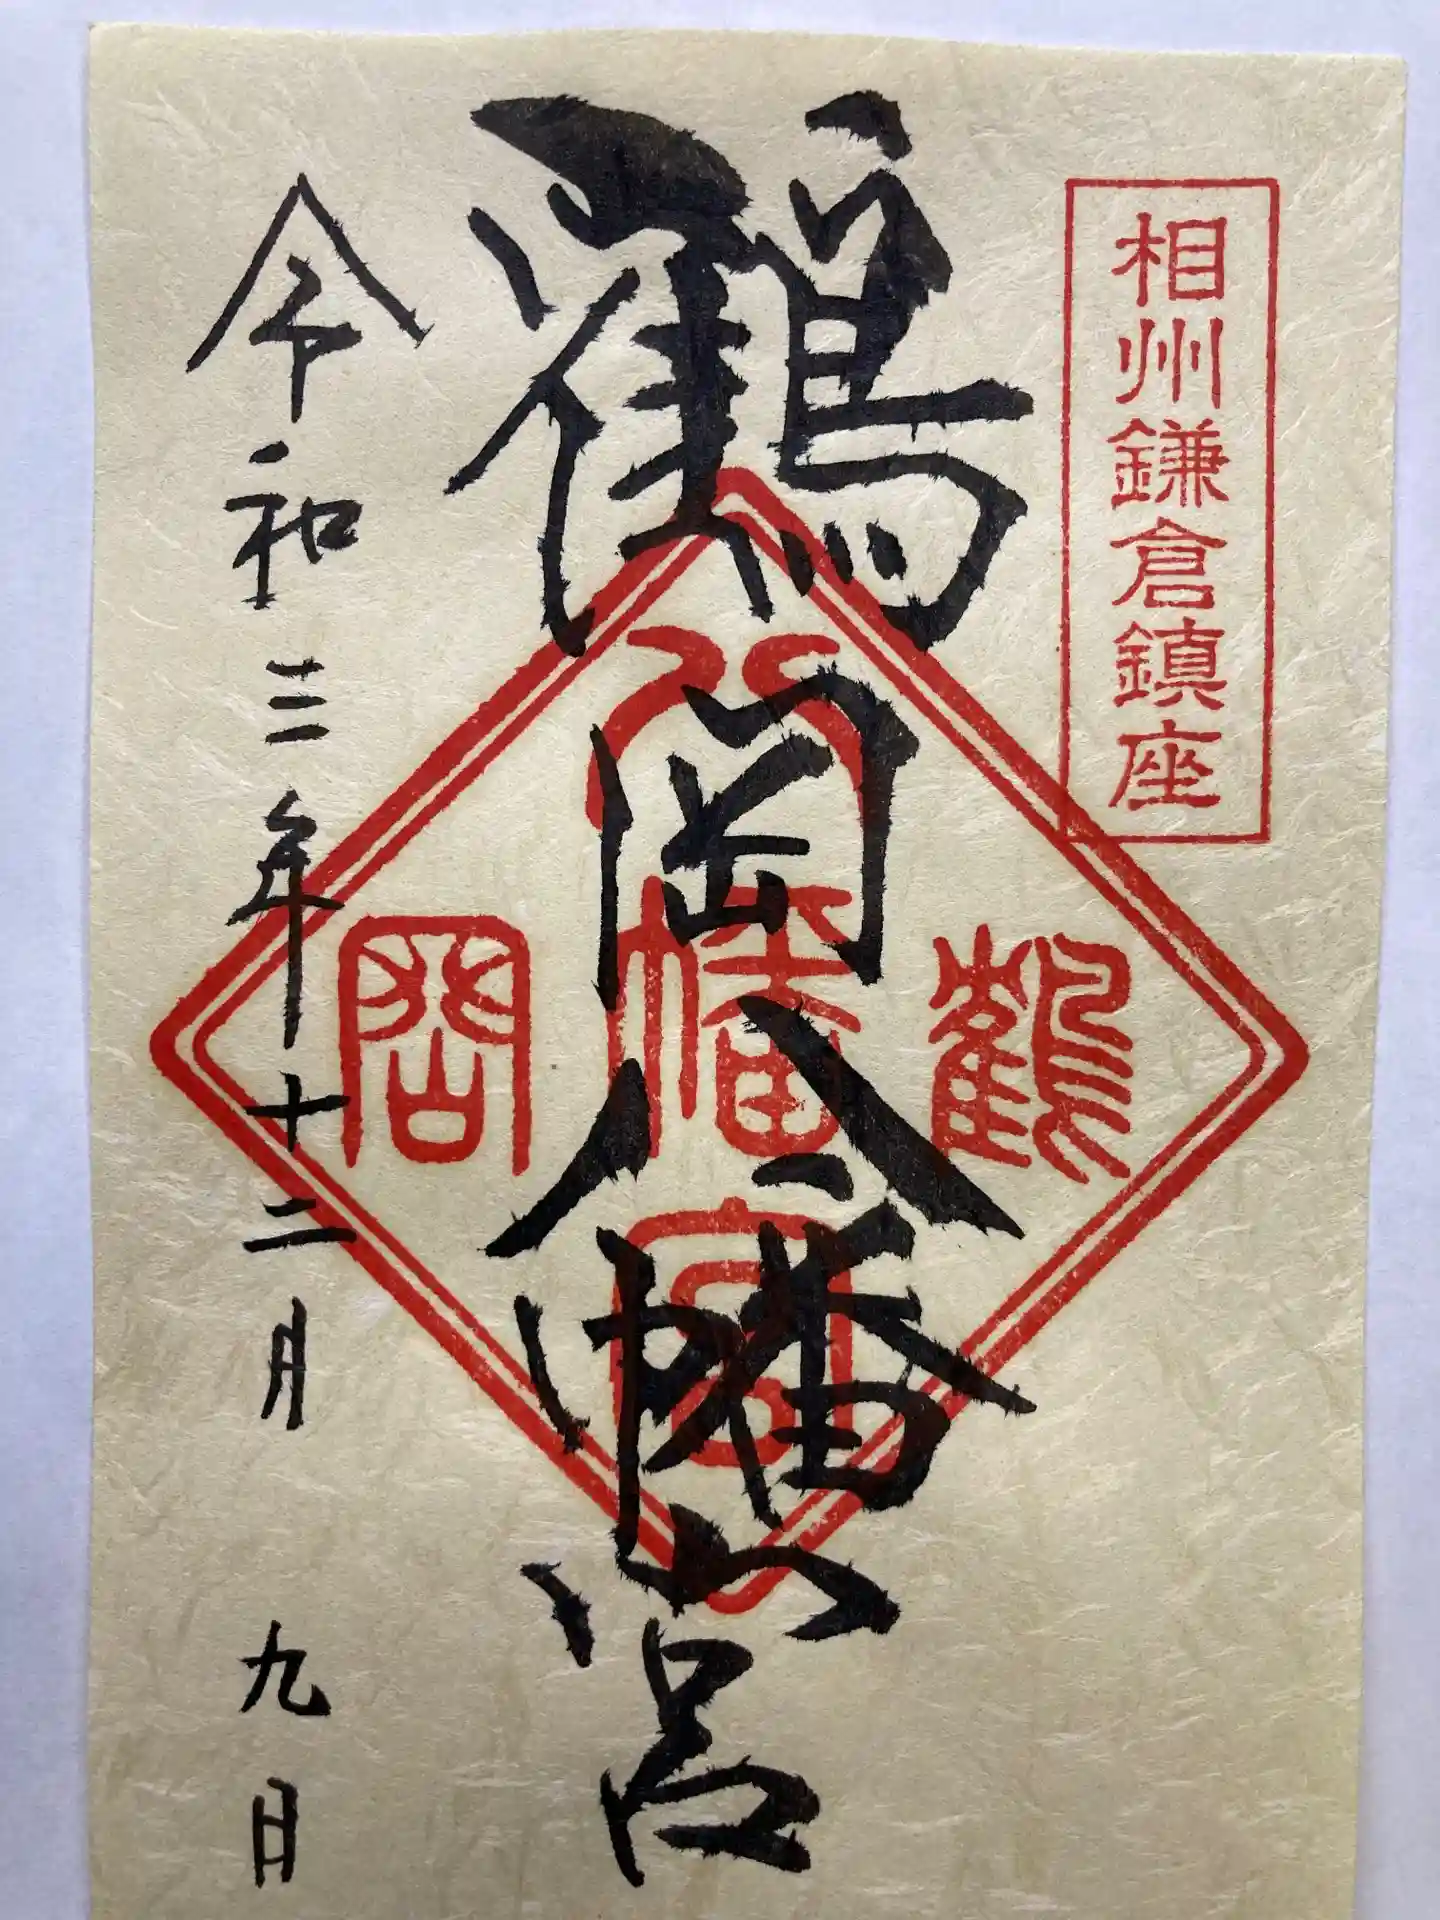 相州鎌倉鎮座
鶴岡八幡宮
鶴
八幡宮
岡
令和三年十二月九日